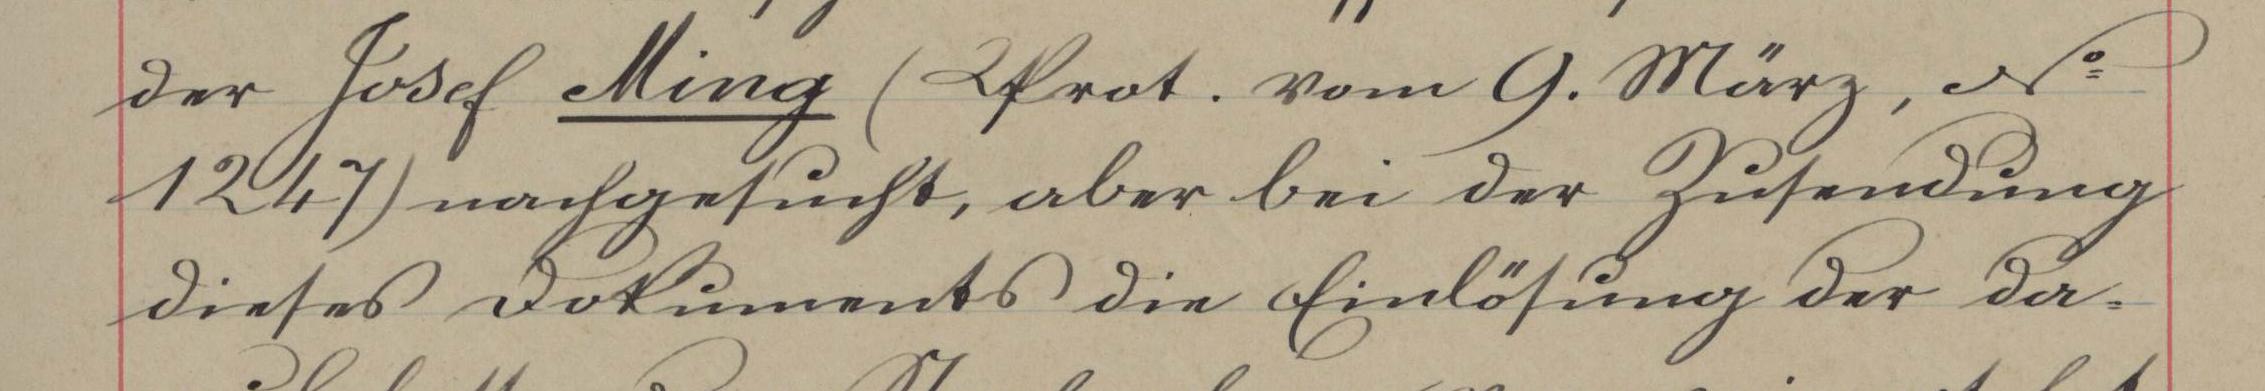 der Josef Ming (Prot. vom 9. März, No
1247) nachgesucht, aber bei der Zusendung
dieses Dokuments die Einlösung der da-